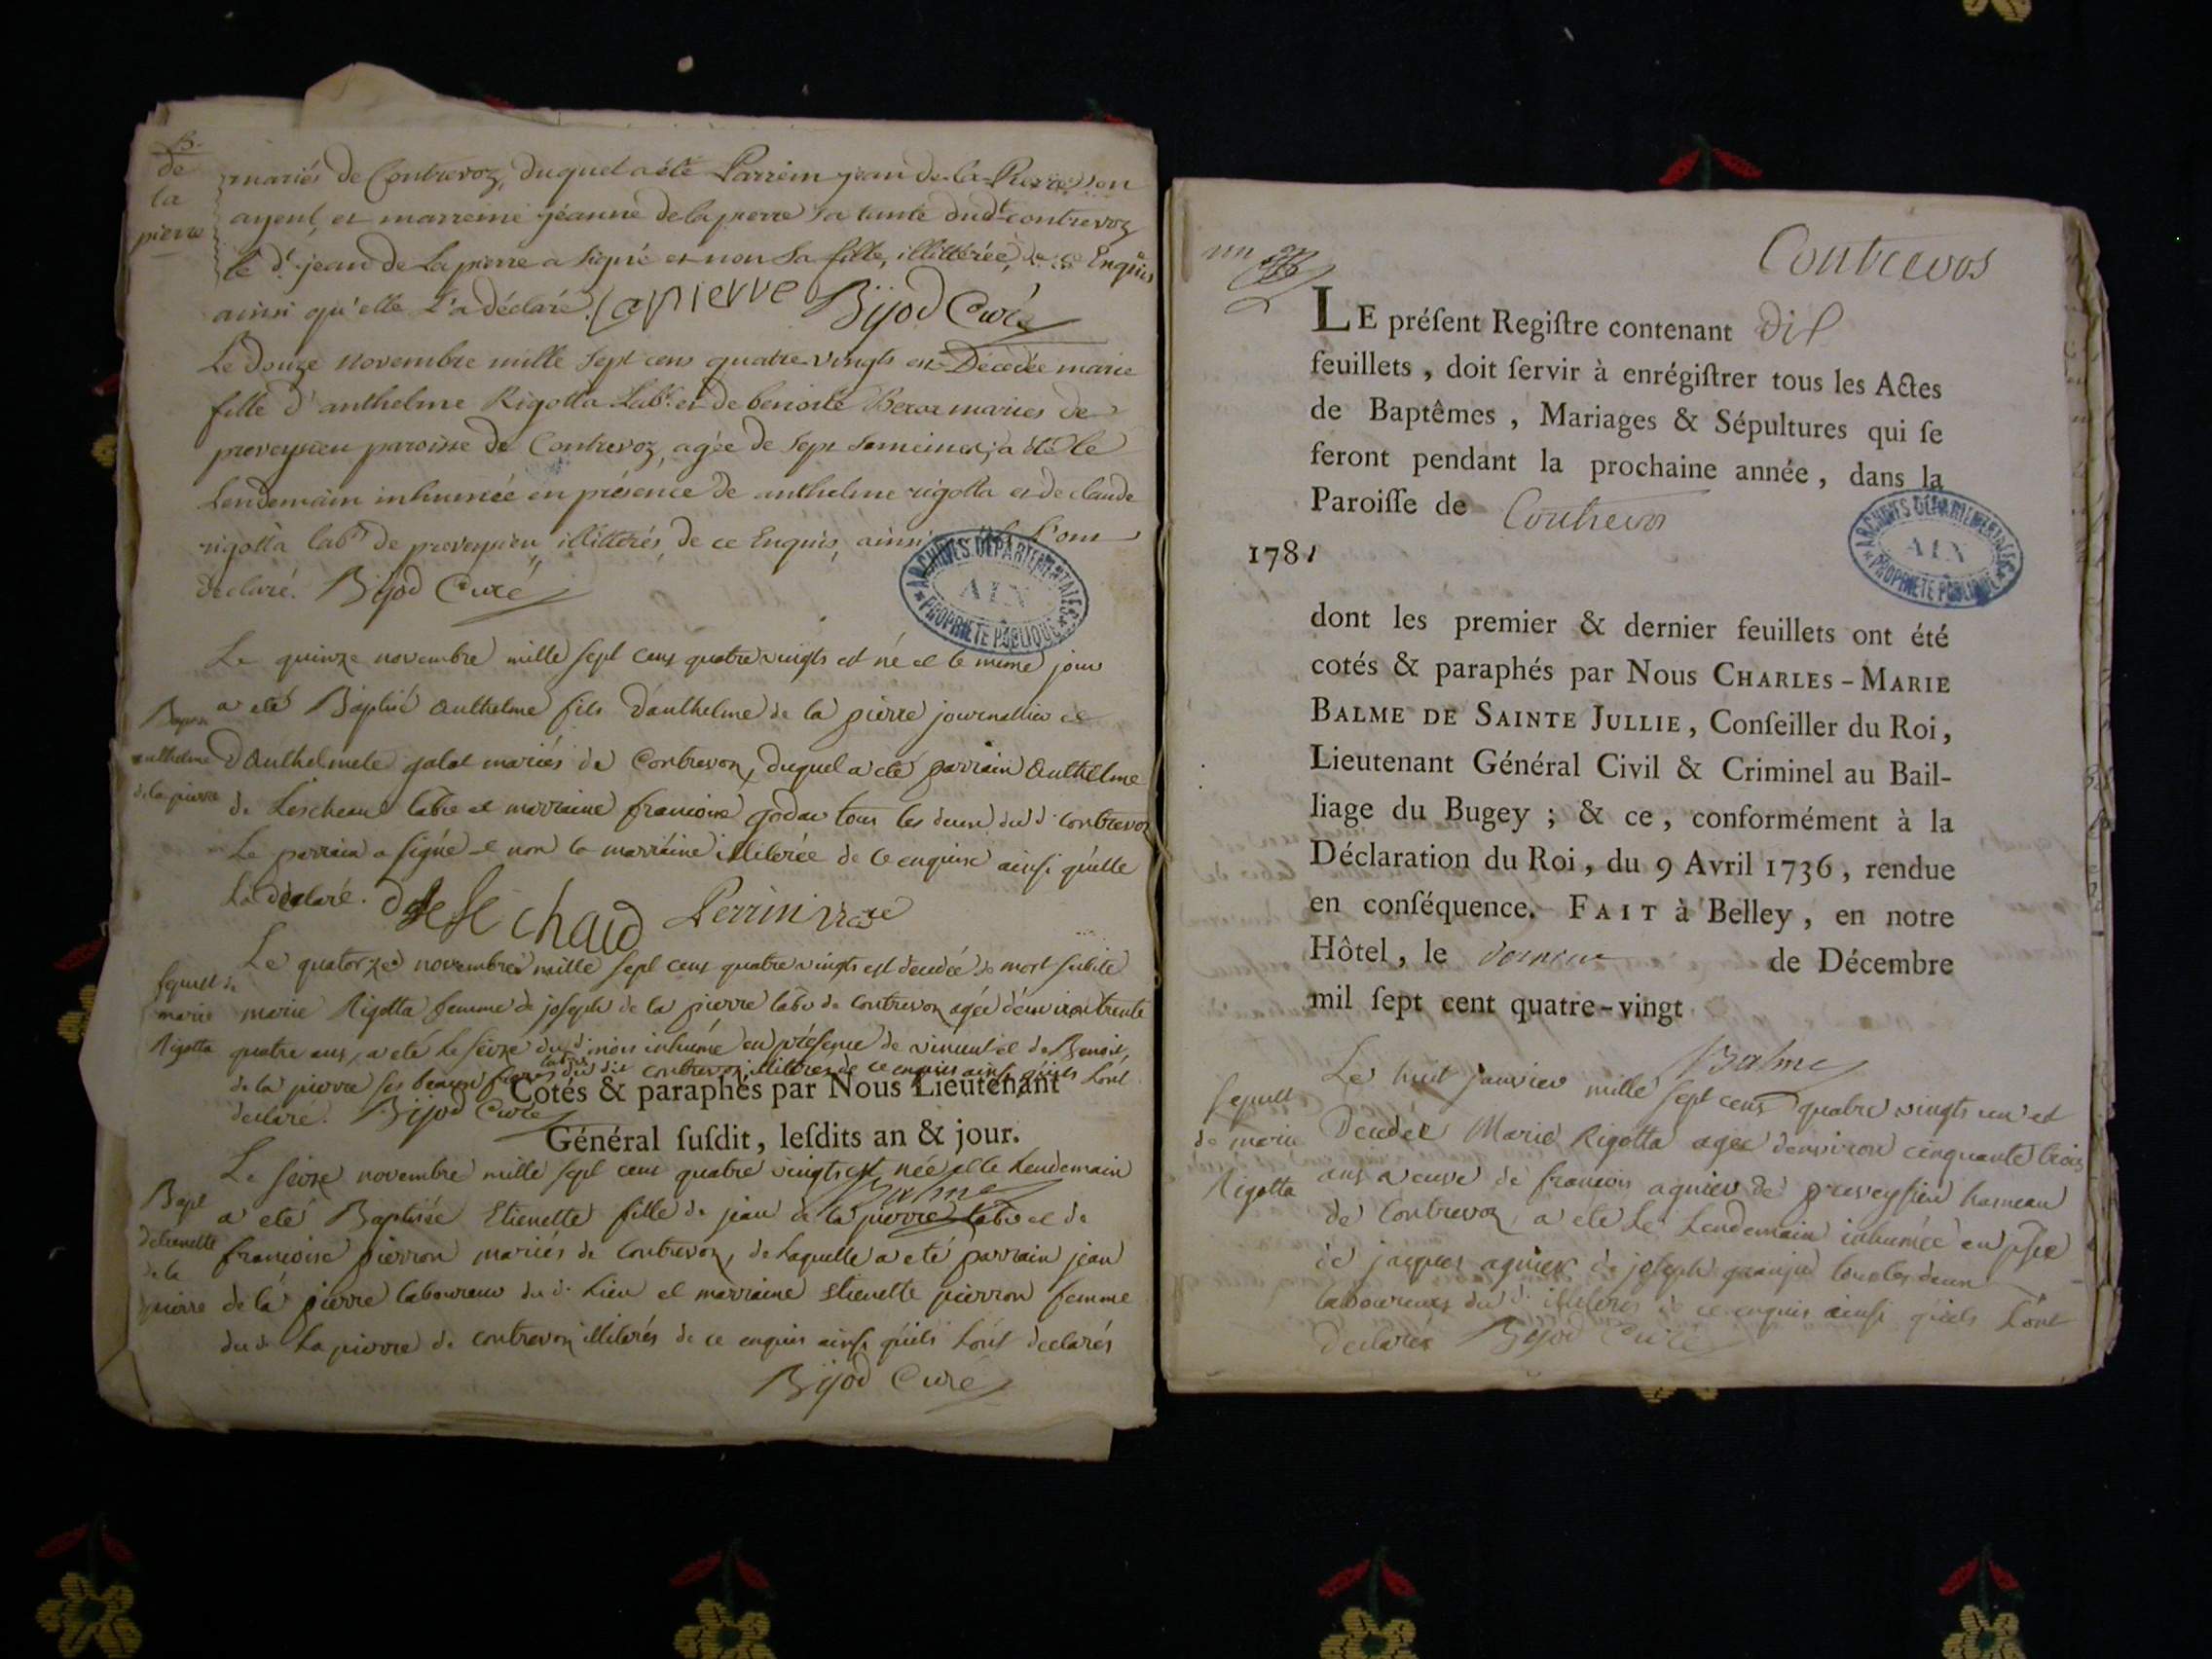 B.
de
la
pierre
mariés de Contrevoz, duquel a été Parrein jean de-la-Pierre son
ayeul, et marreine jéanne delapierre sa tante dud.t contrevoz
le d.t jean de Lapierre a signé et non sa fille, illitterée, de ce Enquis
ainsi qu'elle L'a déclaré. Lapierre Bijod Curé
Le Douze Novembre mille sept cens quatre vingts est Décedée marie
fille d'anthelme Rigotta Lab.r et de benoite mariés de
preveysieu paroisse de Contrevoz, agée de sept semeines, a été le
Lendemain inhumée en présence de anthelme rigotta et de claude
rigotta lab.rs de preveysieu, illitterés, de ce Enquis, ainsi L'ont
declaré. Bijod Curé
ARCHIVES DÉPARTEMENTALES
AIN
PROPRIÉTÉ PUBLIQUE
Le quinze novembre mille sept cens quatre vingts est né et le meme jour
a eté Baptisé Anthelme fils d'anthelme de la pierre journallier et
d'Anthelmete galat mariés de Contrevoz, duquel a eté parrain Anthelme
de Lescheau labr et marraine francoise godar tous les deux du d. Contrevoz
Le parrain a signé et non la marraine illiterée de ce enquise ainsi qu'elle
La déclaré. Perrin vicre
Baptme
anthelme
de la pierre
Le quatorze novembre mille sept cens quatre vingts est decedée de mort subite
marie Rigotta femme de joseph de la pierre labr de Contrevoz agée d'environ trente
quatre ans, a eté le seize du d. mois inhumée en présence de vincent et de Benoit
de la pierre ses beaux freres labrs du dit Contrevoz illitérés de ce enquis ainsi qu'ils L'ont
declaré. Bijod Curé
sepult de
marie
Rigotta
Cotés & paraphés par Nous Lieutenant
Général ſuſdit, leſdits an & jour.
Balme
Le seize novembre mille sept cens quatre vingts est née et le lendemain
a eté Baptisée Etienette fille de jean de la pierre labr et de
francoise pierron mariés de Contrevoz, de Laquelle a eté parrain jean
de la pierre laboureur du d. Lieu et marraine Etienette pierron femme
du d. La pierre de Contrevoz illiterés de ce enquis ainsi qu'ils L'ont declarés
Bijod Curé
Bapt
d'etienette
de la
pierre
un
Contrevos
LE préſent Regiſtre contenant dix
feuillets, doit ſervir à enrégiſtrer tous les Actes
de Baptêmes, Mariages & Sépultures qui ſe
feront pendant la prochaine année, dans la
Paroiſſe de Contrevos
1781
ARCHIVES DÉPARTEMENTALES
AIN
PROPRIÉTÉ PUBLIQUE
dont les premier & dernier feuillets ont été
cotés & paraphés par Nous CHARLES-MARIE
BALME DE SAINTE JULLIE, Conſeiller du Roi,
Lieutenant Général Civil & Criminel au Bail-
liage du Bugey ; & ce, conformément à la
Déclaration du Roi, du 9 Avril 1736, rendue
en conſéquence. FAIT à Belley, en notre
Hôtel, le dernier de Décembre
mil ſept cent quatre-vingt
Balme
Le huit janvier mille sept cens quatre vingts un est
Decedée Marie Rigotta agée d'environ cinquante trois
ans veuve de francois agnier de preveysieu hameau
de Contrevoz, a eté le Lendemain inhumée en psce
de jacques agnier de joseph tous les deux
laboureurs du d. illiteres de ce enquis ainsi qu'ils L'ont
declarés Bijod Curé
sepult
de marie
Rigotta